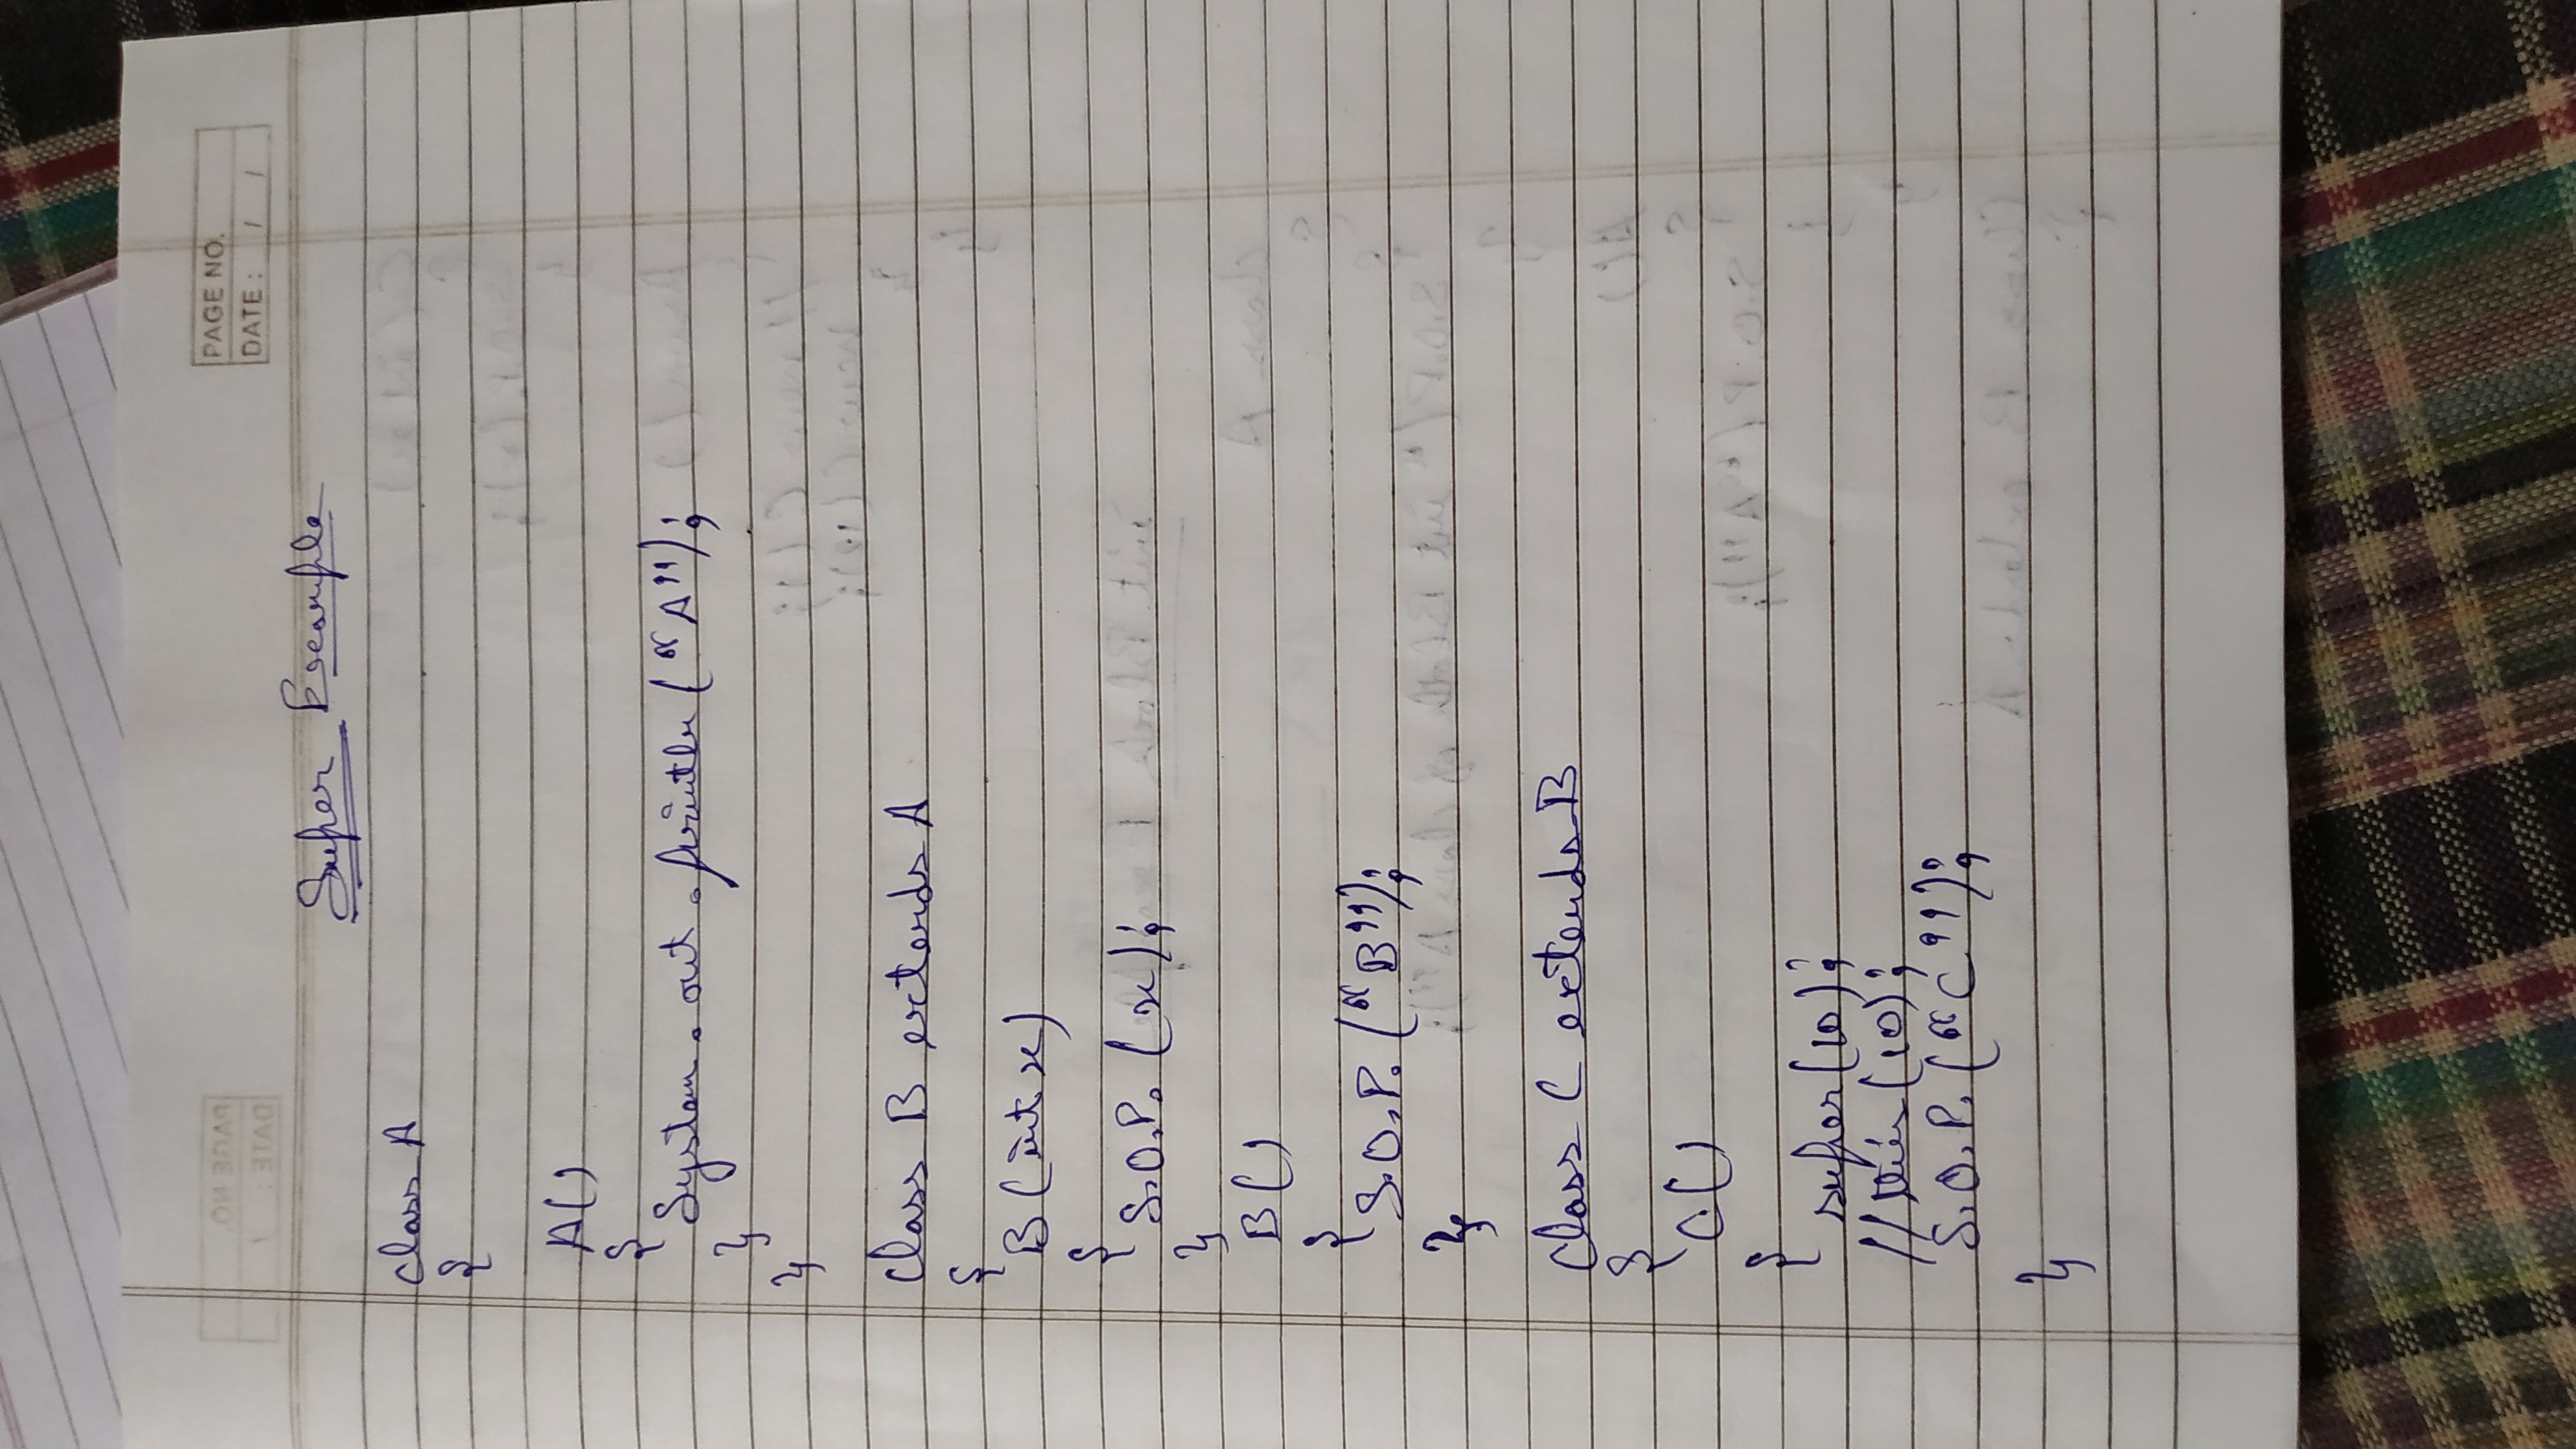 PAGE NO.
DATE : / /
Super Example
class A
{
A()
{
System.out.println("A");
}
}
class B extends A
{
B(int x)
{
S.O.P.(x);
}
B()
{
S.O.P.("B");
}
class C extends B
{
C()
{
super(10);
//this(10);
S.O.P.("C");
}